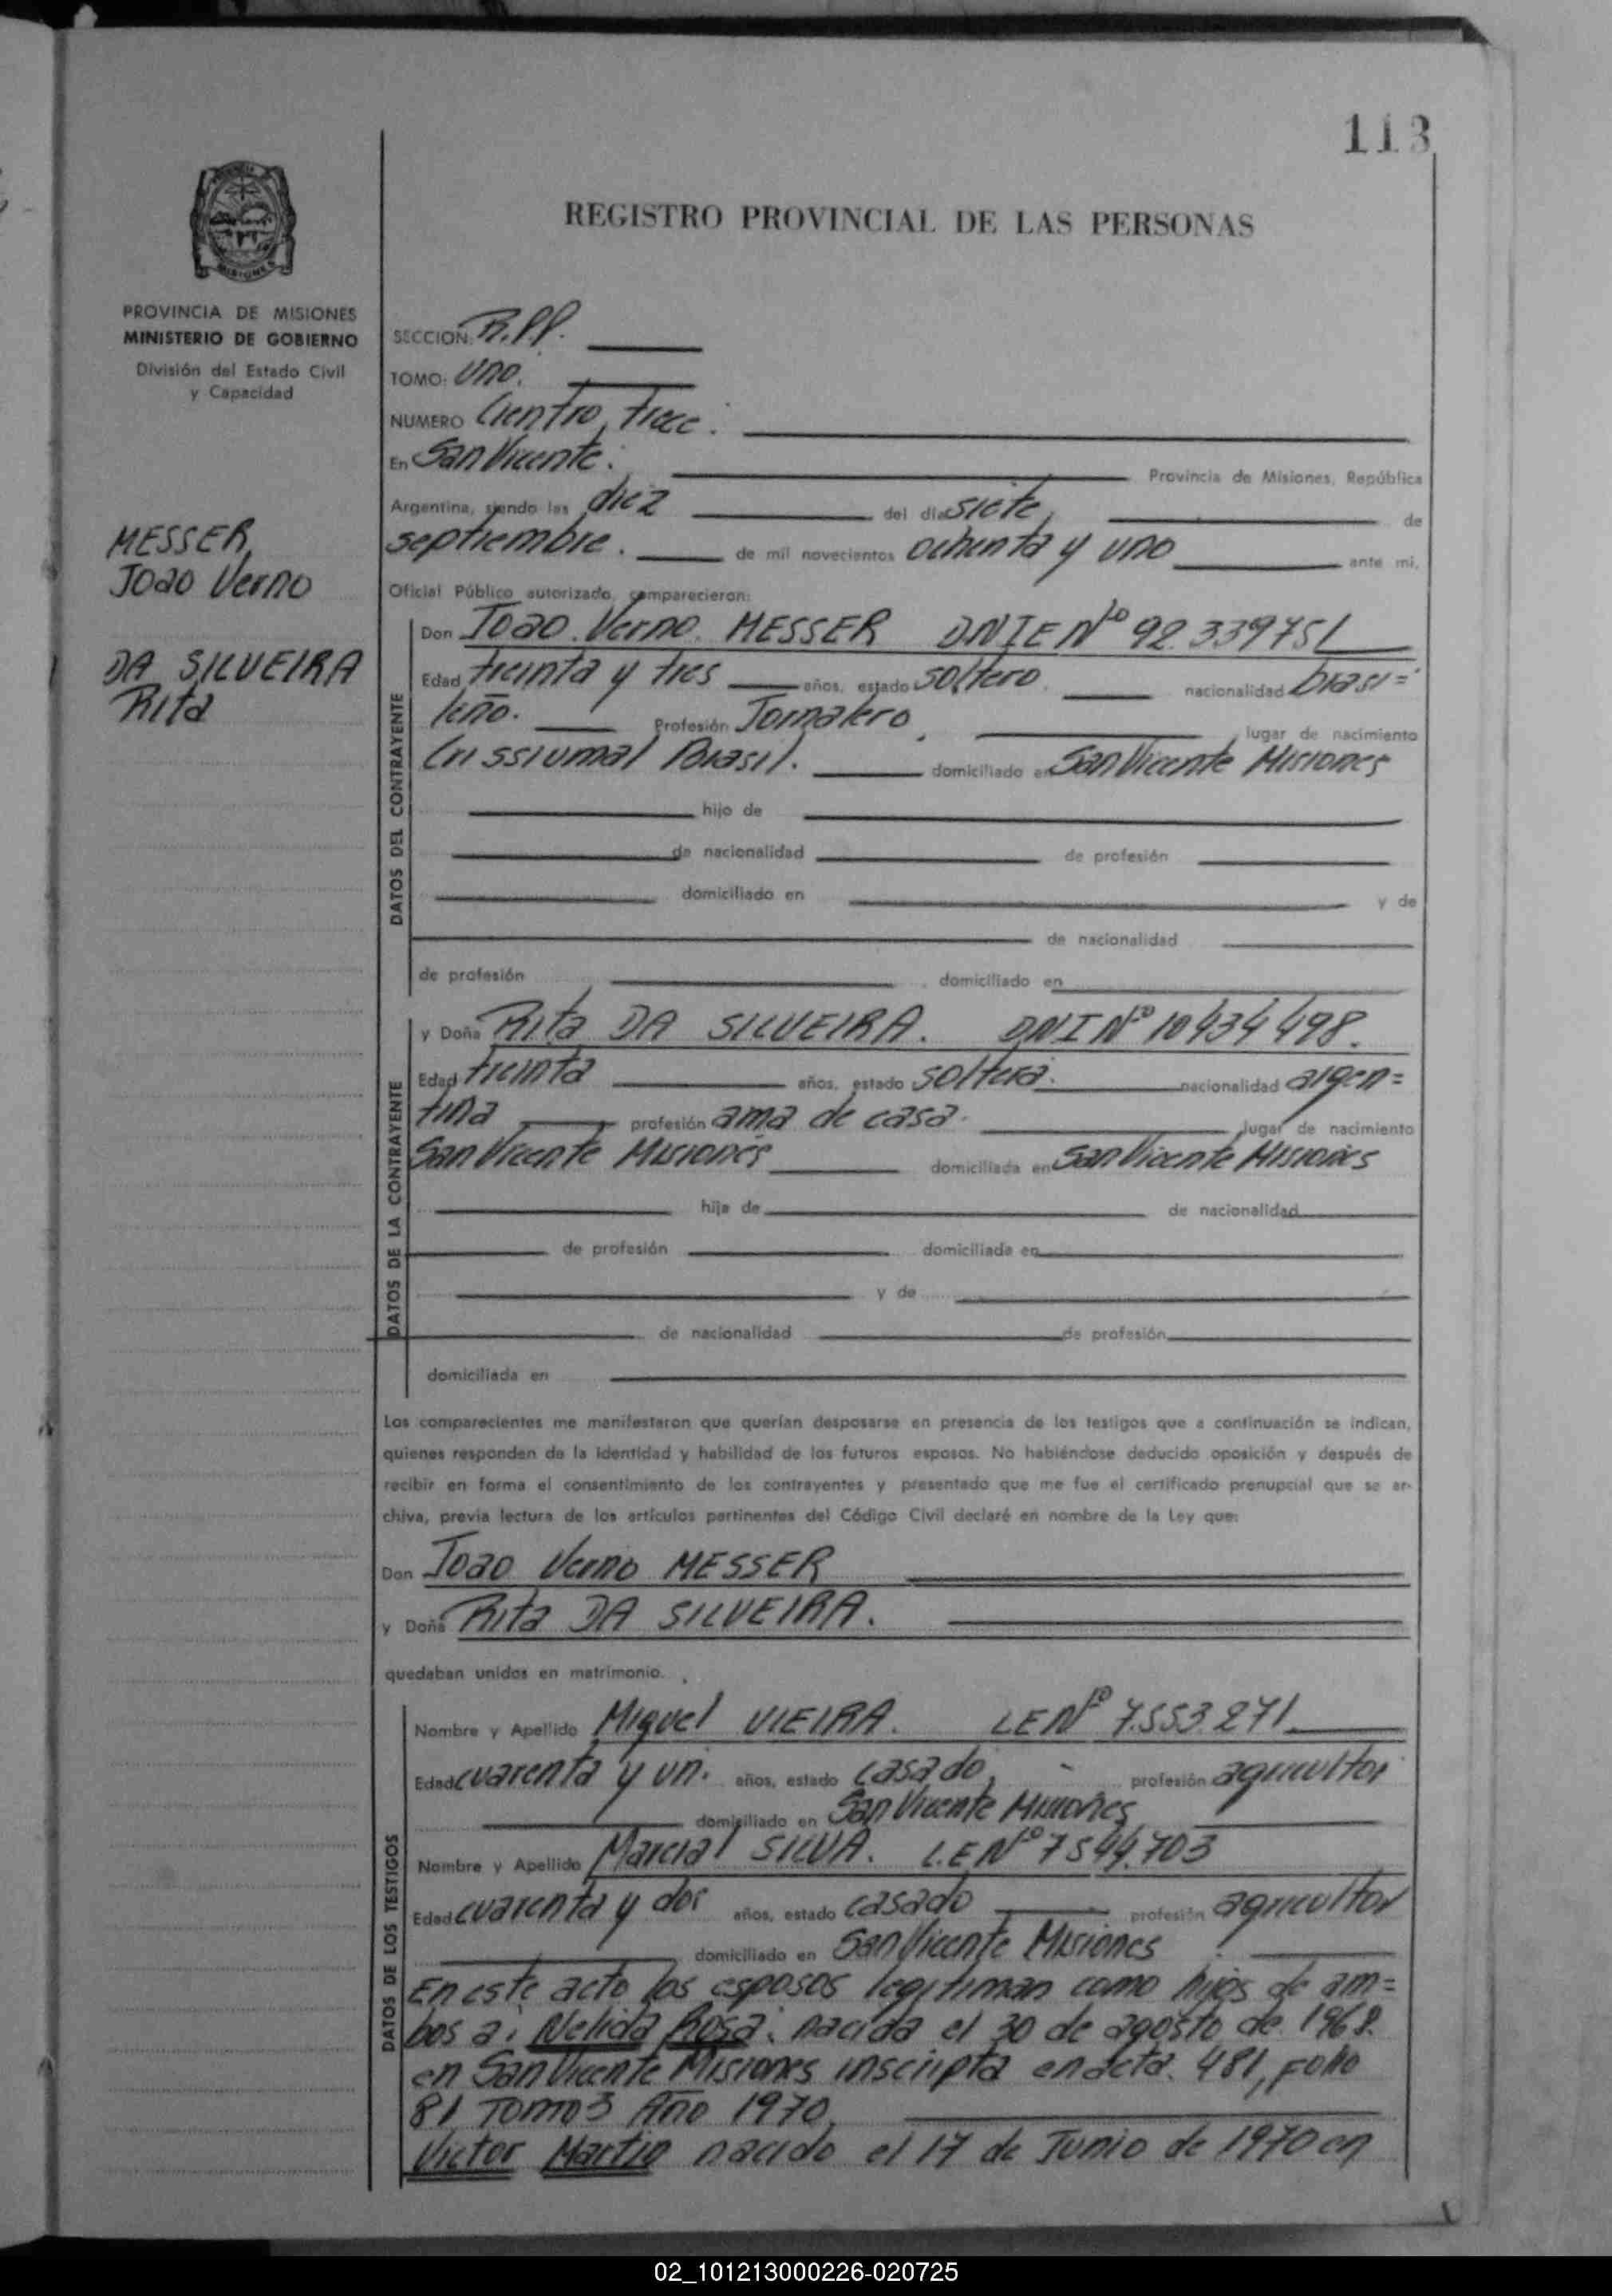 113
REGISTRO PROVINCIAL DE LAS PERSONAS
MISIONES
PROVINCIA DE MISIONES
MINISTERIO DE GOBIERNO
División del Estado Civil
y Capacidad
MESSER,
Joao Verno
DA SILVEIRA
Rita
SECCION: R.P.P.
TOMO: Uno.
NUMERO Cientro, trece.
En San Vicente. Provincia de Misiones, República
Argentina, siendo las diez del día siete, de
septiembre. de mil novecientos ochenta y uno ante mi,
Oficial Público autorizado, comparecieron:
DATOS DEL CONTRAYENTE
Don Joao Verno MESSER DNIE Nº 92.339751
Edad treinta y tres años, estado soltero. nacionalidad brasi=
leño. Profesión Jornalero, lugar de nacimiento
Crissiumal Brasil. domiciliado en San Vicente Misiones
hijo de
de nacionalidad de profesión
domiciliado en y de
de nacionalidad
de profesión domiciliado en
DATOS DE LA CONTRAYENTE
y Doña Rita DA SILVEIRA. DNI Nº 10434498.
Edad treinta años, estado soltera. nacionalidad argen=
tina profesión ama de casa. lugar de nacimiento
San Vicente Misiones domiciliada en San Vicente Misiones
hija de de nacionalidad
de profesión domiciliada en
y de
de nacionalidad de profesión
domiciliada en
Los comparecientes me manifestaron que querían desposarse en presencia de los testigos que a continuación se indican,
quienes responden de la identidad y habilidad de los futuros esposos. No habiéndose deducido oposición y después de
recibir en forma el consentimiento de los contrayentes y presentado que me fue el certificado prenupcial que se ar-
chiva, previa lectura de los artículos pertinentes del Código Civil declaré en nombre de la Ley que:
Don Joao Verno MESSER
y Doña Rita DA SILVEIRA.
quedaban unidos en matrimonio.
DATOS DE LOS TESTIGOS
Nombre y Apellido Miguel VIEIRA. LE Nº 7.553.271
Edad cuarenta y un. años, estado casado, profesión agricultor
domiciliado en San Vicente Misiones
Nombre y Apellido Marcial SILVA. L.E Nº 7544.703
Edad cuarenta y dos años, estado casado profesión agricultor
domiciliado en San Vicente Misiones
En este acto los esposos legitiman como hijos de am=
bos a: Nelida Rosa. nacida el 30 de agosto de 1968.
en San Vicente Misiones inscripta en acta. 481, Folio
81 Tomo 3 Año 1970,
Victor Martin nacido el 17 de Junio de 1970 en
02_101213000226-020725